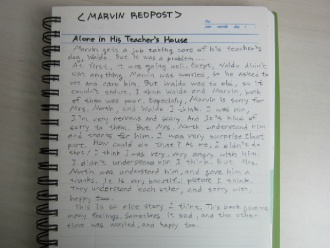 <MARVIN REDPOST>
Alone in His Teacher's House
Marvin gets a job taking care of his teacher's
dog, Waldo. But it was a problem...
At first, it was going well. Except, Waldo didn't
eat anything. Marvin was worried, so he asked to
vet and care him. But Waldo was to old, so it
couldn't endure. I wish Waldo and Marvin, both
of them was poor. Especially, Marvin is sorry for
Mrs. North, and Waldo I think. I was him,
I'm very nervous and scary. And it's kind of
sorry to them. But Mrs. North understand him
and thanks for him. I was very surprise that
part. How could do that? As me, I didn't do
that, I think I was very, very angry with him.
I didn't understand him I think. But Mrs.
North was understand him, and gave him a
thanks. It is very beautiful picture I think.
They understand each other, and sorry with
happy too.
This is so nice story I think. This book gave me
many feelings. Sometimes it sad, and the other
time was worried, and happy too.